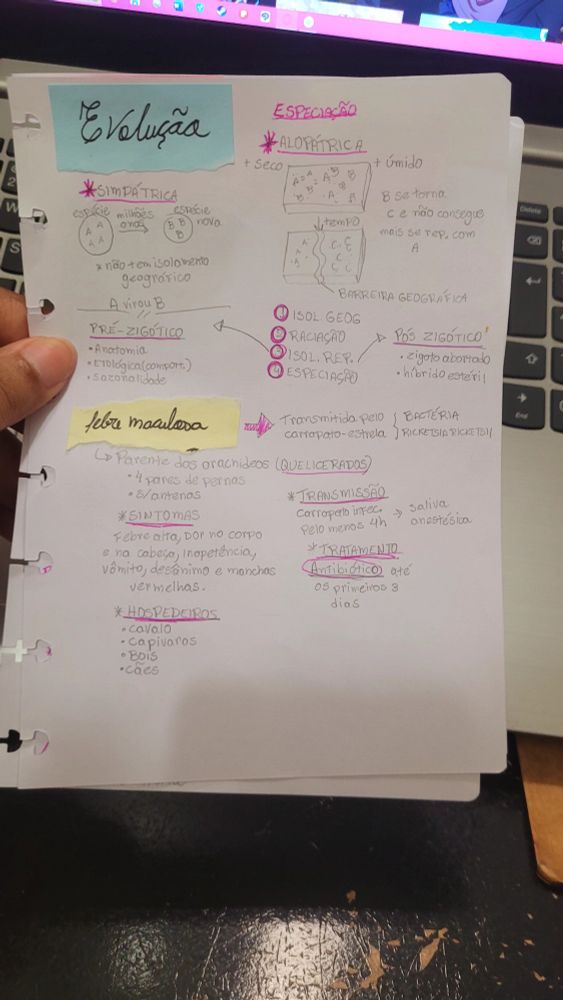 Evolução
ESPECIAÇÃO
*ALOPÁTRICA
+ seco
+ úmido
A A A B B
B B A B
A A
B se torna
C e não consegue
mais se rep. com
A
↓tempo
C C
C C
C
BARREIRA GEOGRÁFICA
*SIMPÁTRICA
espécie
milhões
anos
espécie
nova
A A
A A
B B
B
*não tem isolamento
geográfico
A virou B
PRÉ-ZIGÓTICO
• Anatomia
• Etológica(comport.)
• sazonalidade
1 ISOL. GEOG
2 RACIAÇÃO
3 ISOL. REP.
4 ESPECIAÇÃO
PÓS ZIGÓTICO
• zigoto abortado
• híbrido estéril
febre maculosa
Transmitida pelo
carrapato-estrela
BACTÉRIA
RICKETSIA RICKETSII
Parente dos aracnideos (QUELICERADOS)
• 4 pares de pernas
• s/antenas
*SINTOMAS
Febre alta, dor no corpo
e na cabeça, inapetência,
vômito, desânimo e manchas
vermelhas.
*TRANSMISSÃO
Carrapato infec.
pelo menos 4h → saliva
anestésica
*TRATAMENTO
Antibiótico até
os primeiros 3
dias
*HOSPEDEIROS
• cavalo
• Capivaras
• Bois
• cães
Delete
Enter
End